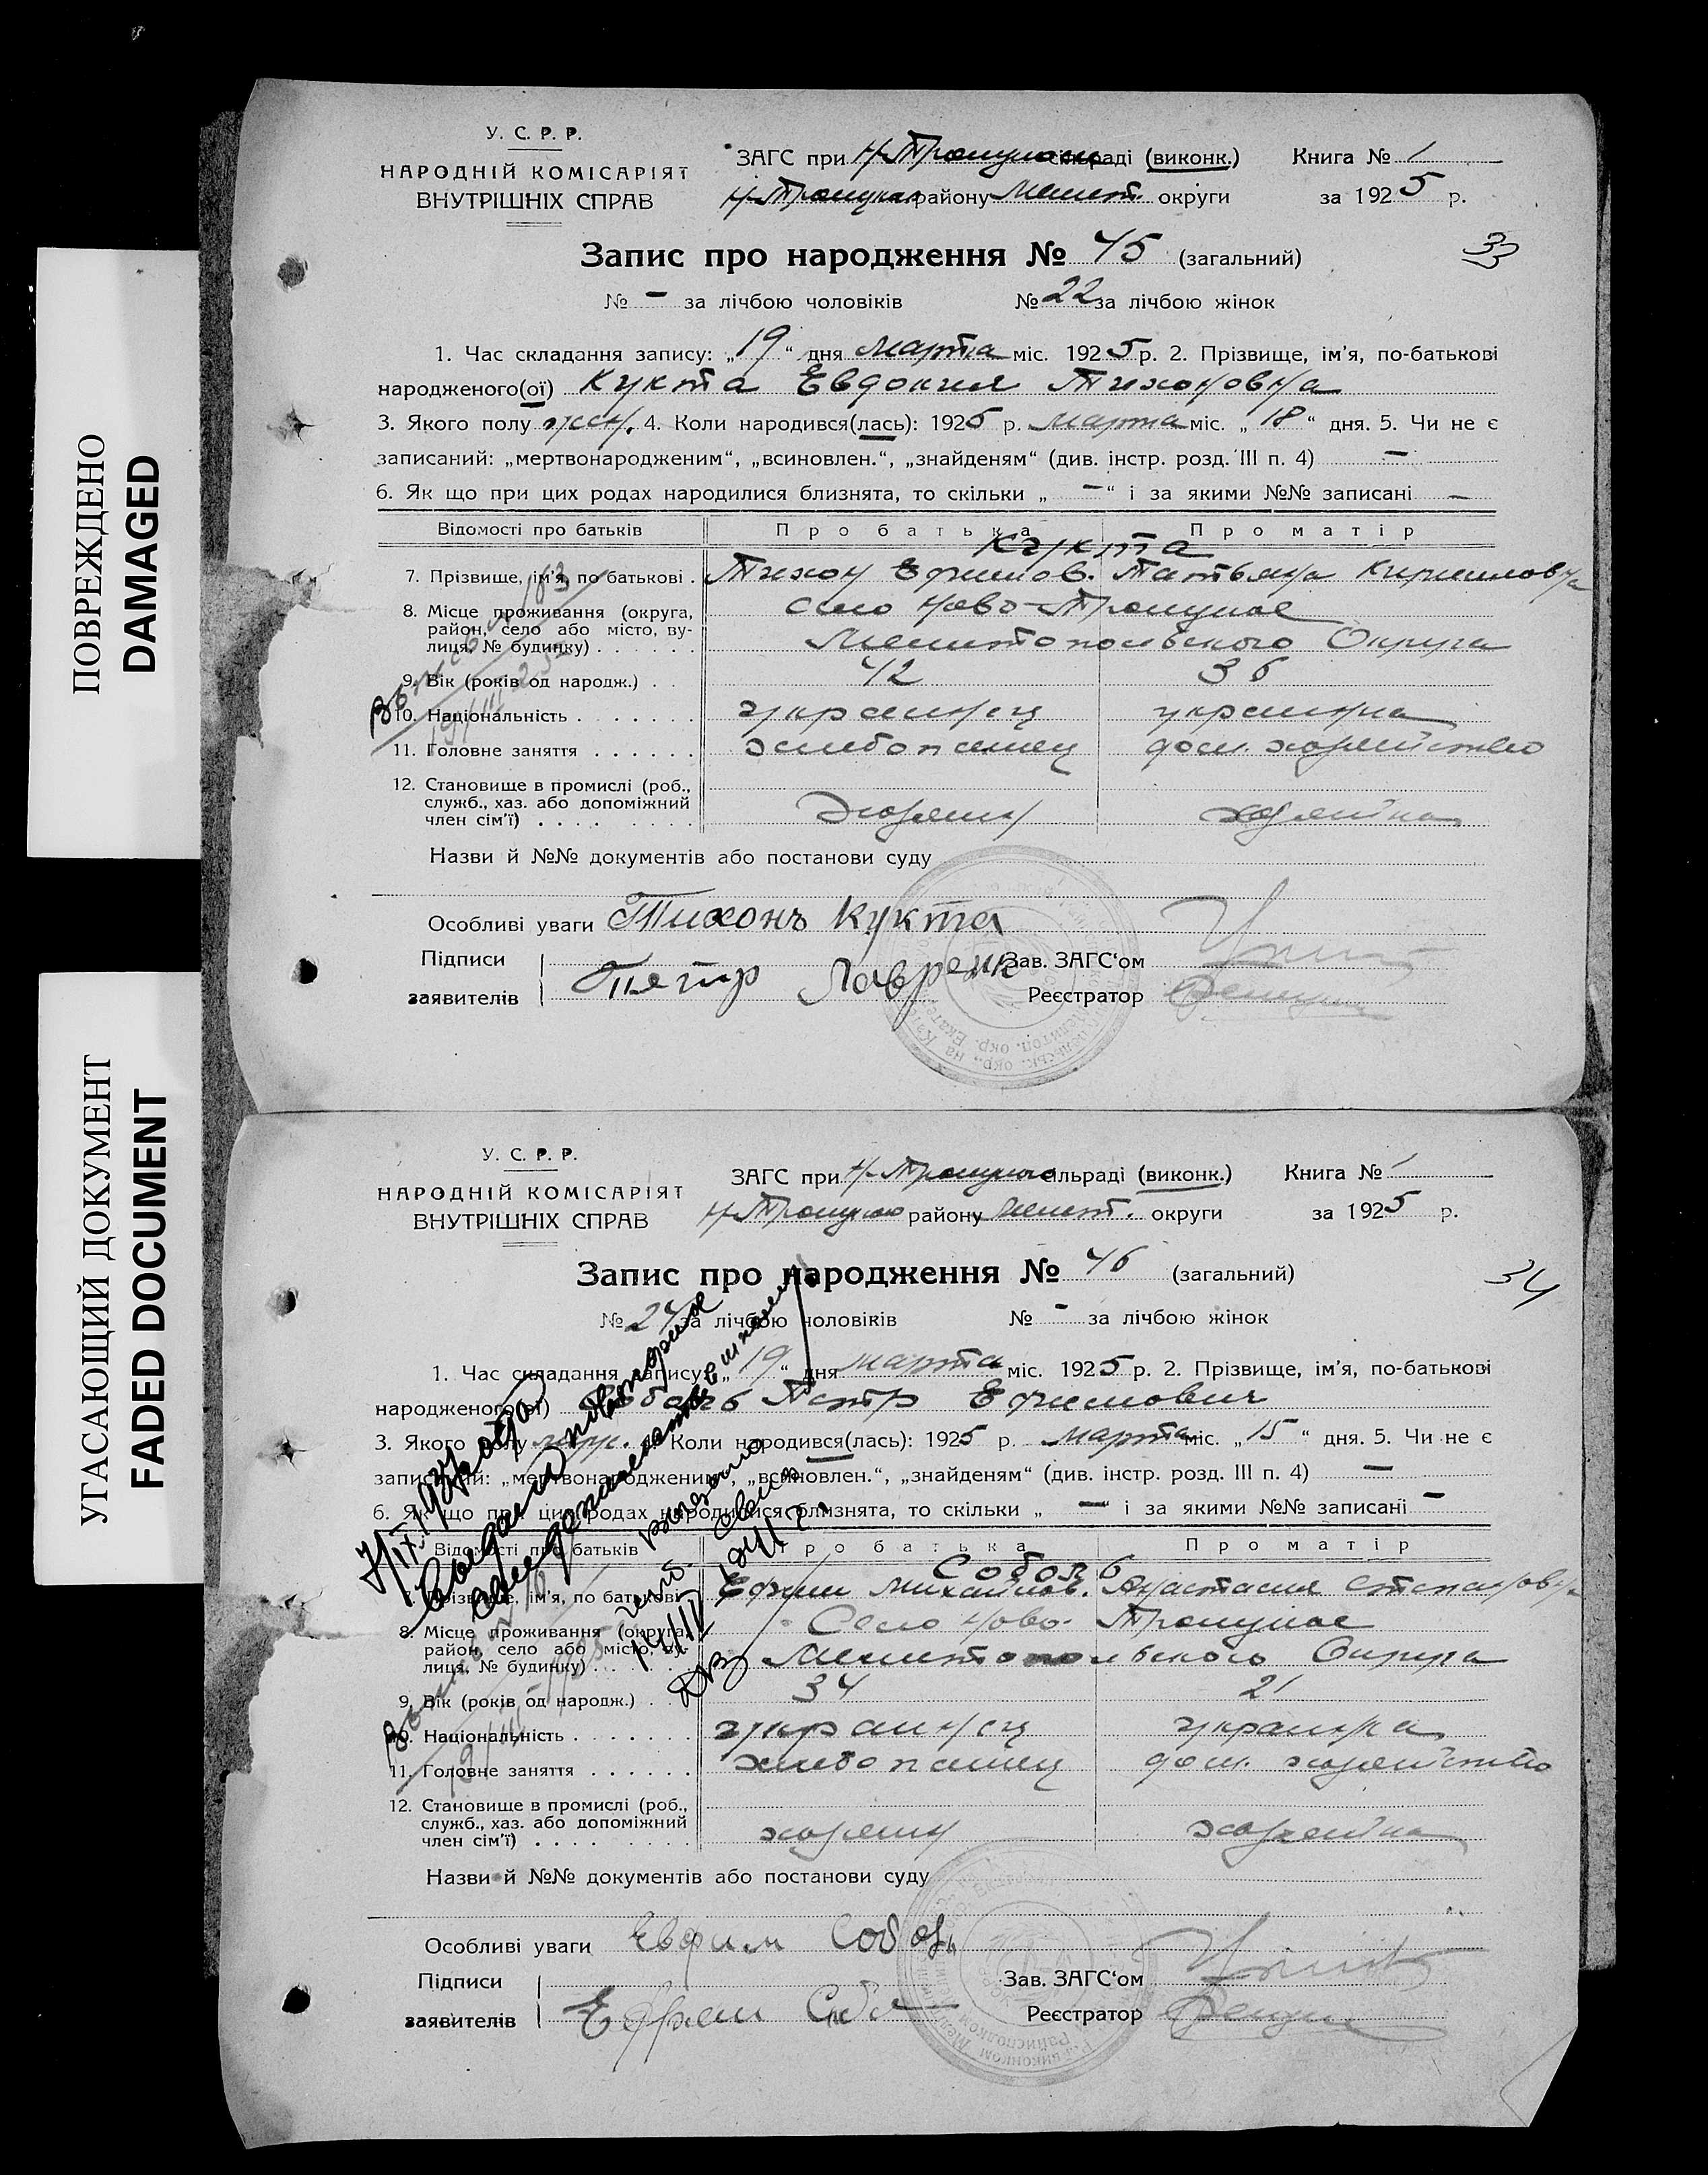 ПОВРЕЖДЕНО
DAMAGED
УГАСАЮЩИЙ ДОКУМЕНТ
FADED DOCUMENT
У. С. Р. Р.
НАРОДНІЙ КОМІСАРІЯТ
ВНУТРІШНІХ СПРАВ
ЗАГС при Н-Троицком сільраді (виконк.) Книга № 1
Н-Троицкого району Мелит. округи за 1925 р.
Запис про народження № 45 (загальний)
33
№ - за лічбою чоловіків № 22 за лічбою жінок
1. Час складання запису: „19“ дня марта міс. 1925 р. 2. Прізвище, ім'я, по-батькові
народженого(ої) Кукта Евдокия Тихоновна
3. Якого полу жен. 4. Коли народився(лась): 1925 р. марта міс. „18“ дня. 5. Чи не є
записаний: „мертвонародженим“, „всиновлен.“, „знайденям“ (див. інстр. розд. III п. 4) —
6. Як що при цих родах народилися близнята, то скільки „—“ і за якими №№ записані —
Відомості про батьків Про батька Про матір
Кукта
7. Прізвище, ім'я, по батькові . Тихон Ефимов. Татьяна Кирилловна
8. Місце проживання (округа, село Ново-Троицкое
район, село або місто, ву-
лиця, № будинку) . . . . . . Мелитопольского Округа
9. Вік (років од народж.) . . 42 36
10. Національність . . . . . . . украинец украинка
11. Головне заняття . . . . . . хлебопашец дом. хозяйство
12. Становище в промислі (роб.,
служб., хаз. або допоміжний
член сім'ї) . . . . . . . . Хозяин хозяйка
Назви й №№ документів або постанови суду
Особливі уваги Тихонъ Кукта
Підписи
заявителів Пятир Лавренк
Зав. ЗАГС'ом
Реєстратор
У. С. Р. Р.
НАРОДНІЙ КОМІСАРІЯТ
ВНУТРІШНІХ СПРАВ
ЗАГС при Н-Троицком сільраді (виконк.) Книга № 1
Н-Троицкого району Мелит. округи за 1925 р.
Запис про народження № 46 (загальний)
34
№ 24 за лічбою чоловіків № - за лічбою жінок
1. Час складання запису: „19“ дня марта міс. 1925 р. 2. Прізвище, ім'я, по-батькові
народженого(ої) Соболь Петр Ефимович
3. Якого полу муж. 4. Коли народився(лась): 1925 р. марта міс. „15“ дня. 5. Чи не є
записаний: „мертвонародженим“, „всиновлен.“, „знайденям“ (див. інстр. розд. III п. 4) —
6. Як що при цих родах народилися близнята, то скільки „—“ і за якими №№ записані —
Відомості про батьків Про батька Про матір
Соболь
7. Прізвище, ім'я, по батькові . Ефим Михайлов. Анастасия Степановна
8. Місце проживання (округа, Село Ново-Троицкое
район, село або місто, ву-
лиця, № будинку) . . . Мелитопольского Округа
9. Вік (років од народж.) . . 34 21
10. Національність . . . . . . . украинец украинка
11. Головне заняття . . . . . . хлебопашец дом. хозяйство
12. Становище в промислі (роб.,
служб., хаз. або допоміжний
член сім'ї) . . . . . . . . хозяин хозяйка
Назви й №№ документів або постанови суду
Особливі уваги Евфим Соболь
Підписи
заявителів
Зав. ЗАГС'ом
Реєстратор